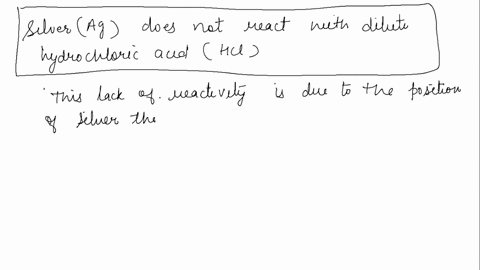 Silver (Ag) does not react with dilute
hydrochloric acid (HCl)
This lack of reactivity is due to the position
of silver the